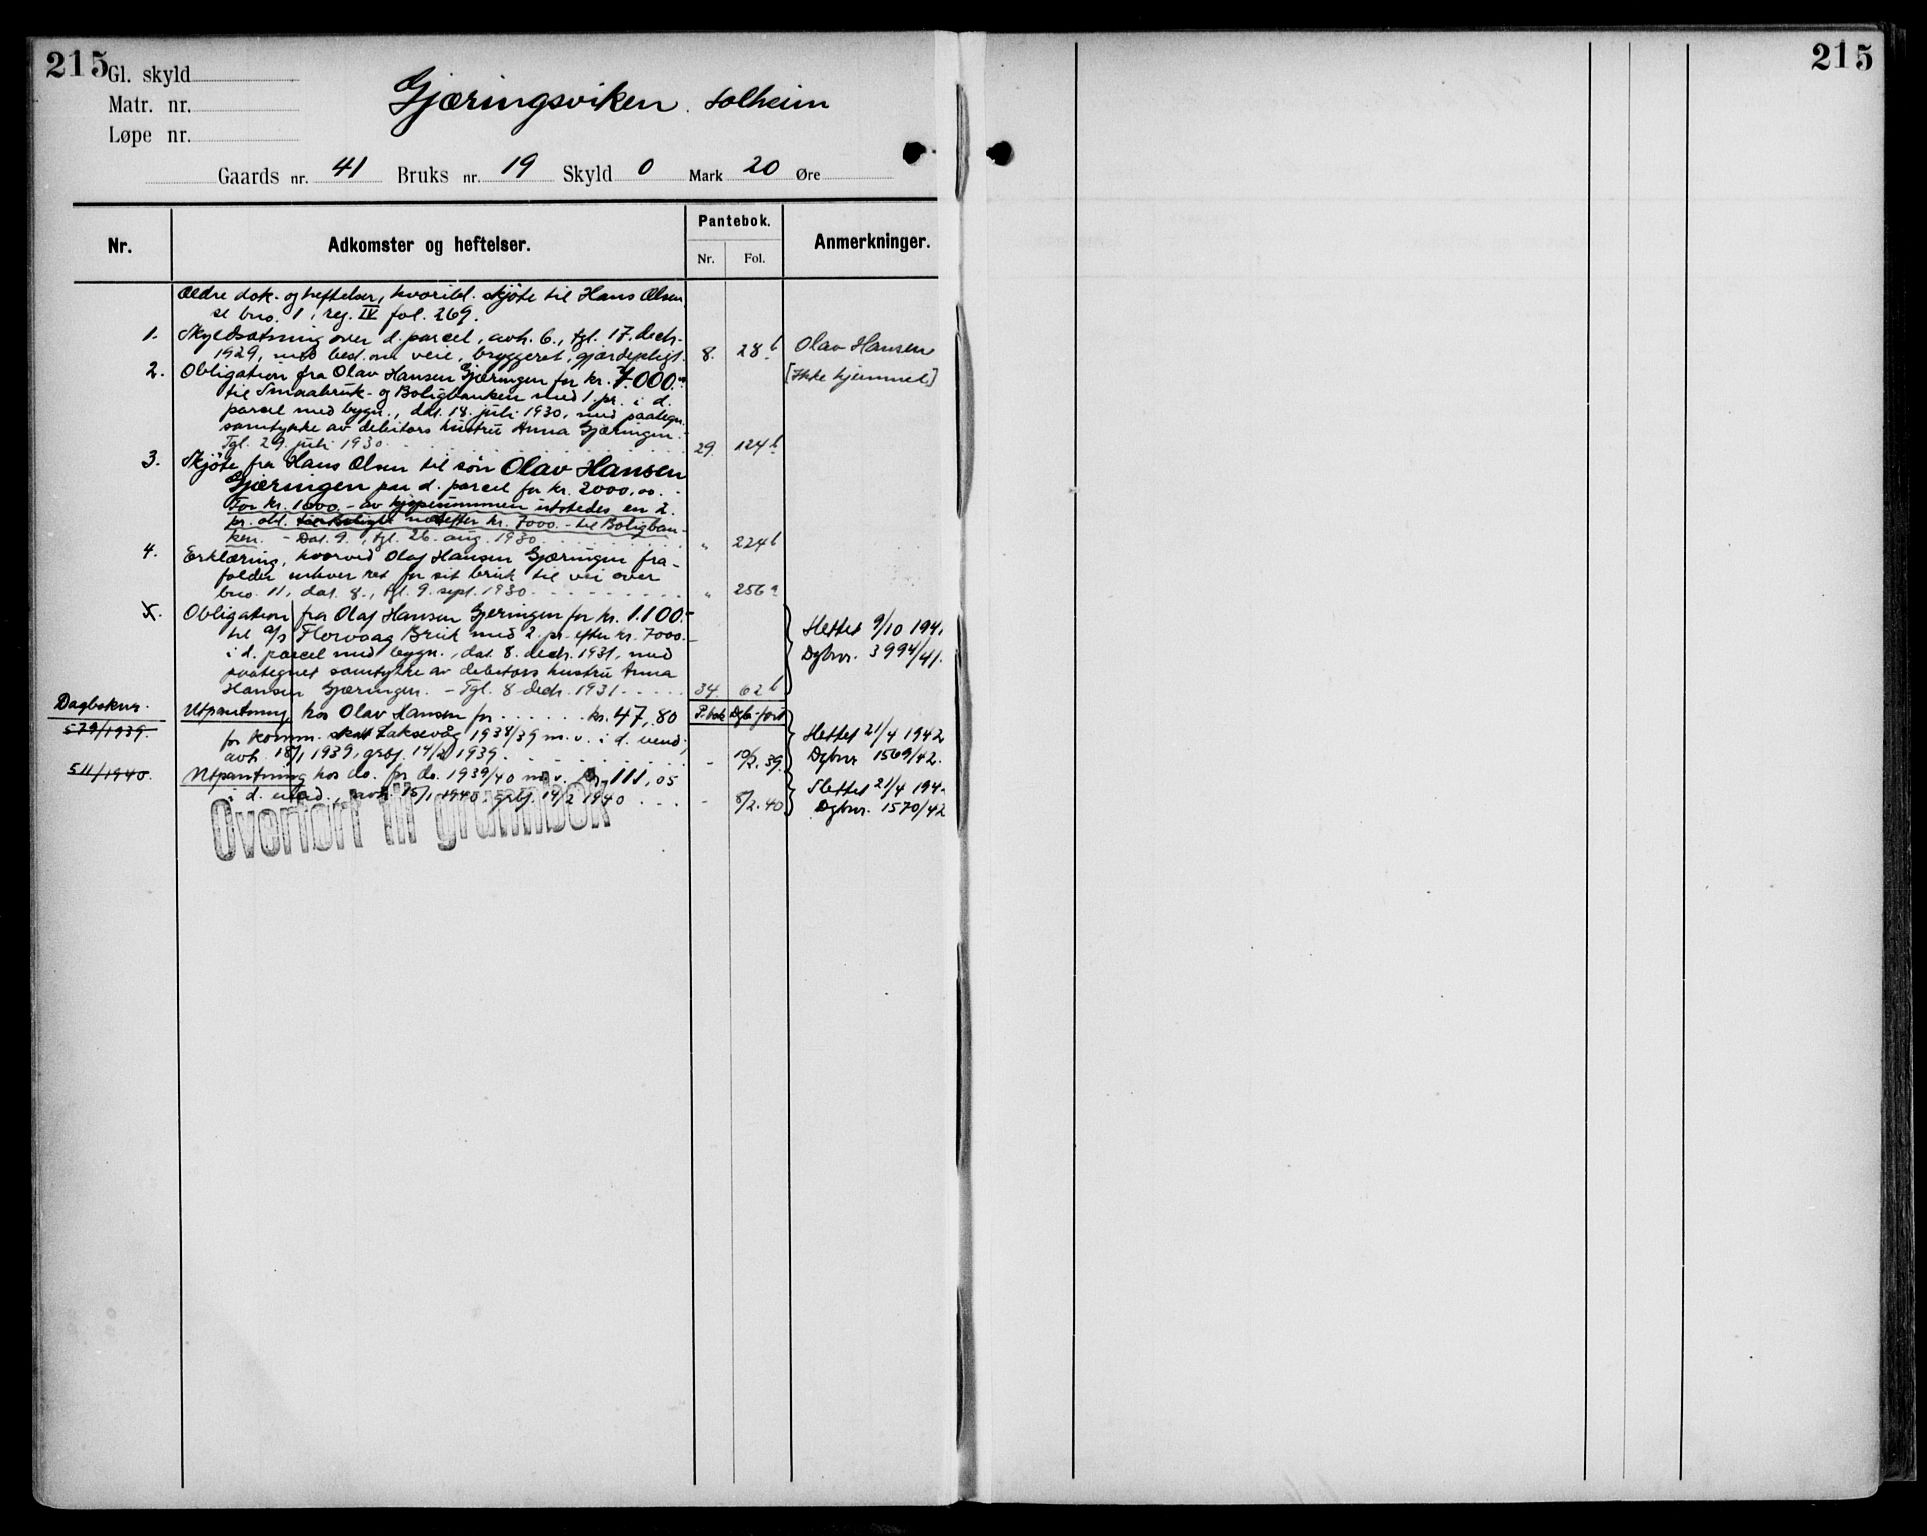 215
215
Gl. skyld
Matr. nr.
Løpe nr.
Gjæringsviken. Solheim
Gaards nr. 41 Bruks nr. 19 Skyld 0 Mark 20 Øre
Nr. Adkomster og heftelser. Pantebok. Anmerkninger.
Nr. Fol.
Ældre dok. og heftelser, hvoribl. skjøte til Hans Olsen
se bno. 1, reg. IV fol. 269.
1. Skyldsætning over d. parcel, avh. 6., tgl. 17. decbr.
1929, med best. om veie, bryggeret, gjærdepligt. 8. 28 b Olav Hansen
[Ikke hjemmel]
2. Obligation fra Olav Hansen Gjæringen for kr. 7.000.-
til Smaabruk- og Boligbanken med 1. pr. i d.
parcel med bygn., dat. 18. juli 1930, med paategn.
samtykke av debitors hustru Anna Gjæringen.
Tgl. 29. juli 1930 . . . 29. 124 b
3. Skjøte fra Hans Olsen til søn Olav Hansen
Gjæringen paa d. parcel for kr. 2000.00. -
For kr. 1800.- av kjøpesummen utstedes en 2.
pr. obl. næstefter kr. 7000.- til Boligban-
ken. - Dat. 9., tgl. 26. aug. 1930 . . . " 224 b
4. Erklæring, hvorved Olaf Hansen Gjæringen fra-
falder enhver ret for sit bruk til vei over
bno. 11, dat. 8., tgl. 9. sept. 1930 . . . " 256 a
5. Obligation fra Olaf Hansen Gjæringen for kr. 1.100.-
til a/s Florvaag Bruk med 2. pr. efter kr. 7000.-
i d. parcel med bygn., dat. 8. decbr. 1931, med
paategnet samtykke av debitors hustru Anna
Hansen Gjæringen. - Tgl. 8. decbr. 1931 . . . 34. 62 b
Slettet 9/10 1941
Dgbnr. 3994/41.
Dagboknr.
579/1939.
Utpantning hos Olav Hansen for . . . kr. 47,80 P.bok Dgb.ført
for komm. skatt Laksevåg 1938/39 m.v. i d. eiend.,
avh. 18/1 1939, grbj. 14/2 1939 . . . - 10/2.39.
Slettet 21/4 1942
Dgbnr 1569/42.
511/1940.
Utpantning hos do. for do. 1939/40 m.v. kr. 111,05
i d. eiend., avh. 15/1 1940, grbj. 14/2 1940 . . . - 8/2.40
Slettet 21/4 194
Dgbnr. 1570/42
Overført til grunnbok